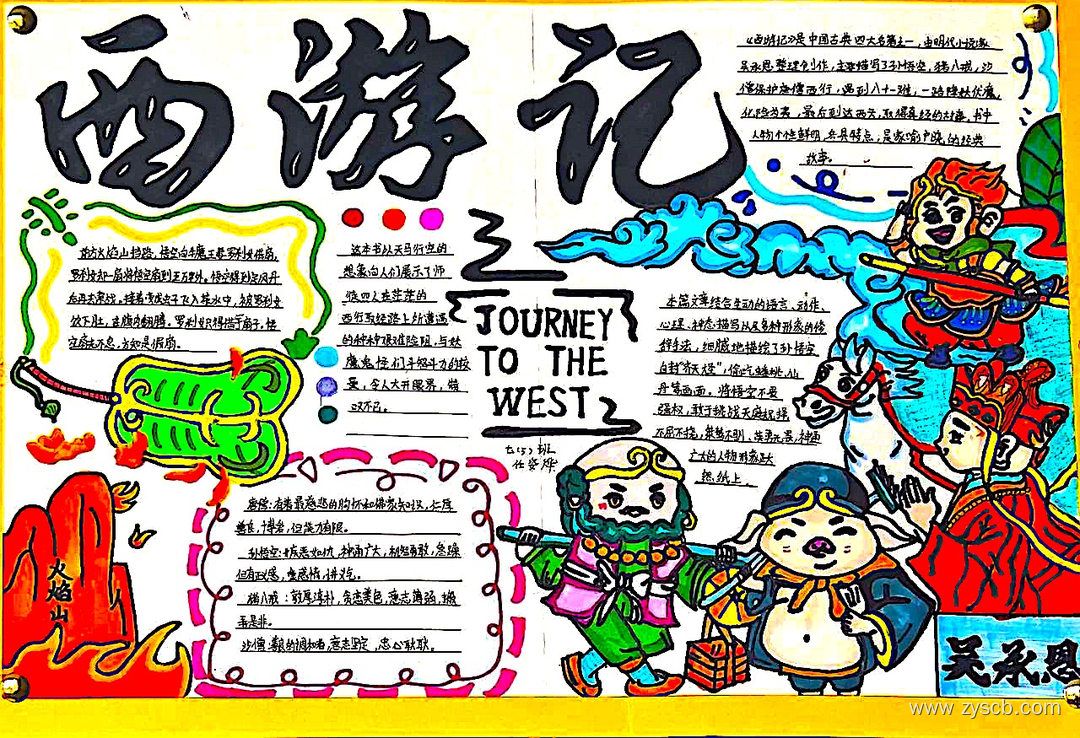 西游记
《西游记》是中国古典四大名著之一，由明代小说家
吴承恩整理创作，主要描写了孙悟空，猪八戒，沙
僧保护唐僧西行，遇到八十一难，一路降妖伏魔，
化险为夷，最后到达西天，取得真经的故事。书中
人物个性鲜明，各具特点，是家喻户晓的经典
故事。
南方火焰山挡路，悟空向牛魔王妻罗刹女借扇，
罗刹女却一扇将悟空扇到五万里外。悟空得到定风丹
后再去索战。接着变成虫子飞入茶水中，被罗刹女
饮下肚，在腹内翻腾，罗刹女只得借于扇子，悟
空扇火不息，方知是假扇。
这本书以天马行空的
想象向人们展示了师
徒四人在茫茫的
西行取经路上所遭遇
的种种艰难险阻，与妖
魔鬼怪们斗智斗力的较
量，令人大开眼界，赞
叹不已。
JOURNEY
TO THE
WEST
七(5)班
本篇文章结合生动的语言、动作、
心理、神态描写以及多种形态的修
辞手法，细腻地描绘了孙悟空
自封“齐天大圣”，偷吃蟠桃、仙
丹等画面。将悟空不畏
强权，敢于挑战天庭权择
不屈不挠，桀骜不驯、英勇无畏、神通
广大的人物形象跃
然纸上
唐僧：有着最慈悲的胸怀和佛家知识，仁厚
善良，博爱，但能力有限。
孙悟空：疾恶如仇，神通广大，机智勇敢，急躁
但有正义感，重感情，讲义气。
猪八戒：敦厚淳朴，贪恋美色，意志薄弱，搬
弄是非。
沙僧：意志坚定，忠心耿耿。
火焰山
吴承恩
www.zyscb.com